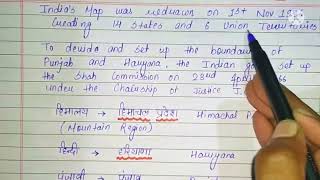 India's Map was redrawn on 1st Nov 195
Creating 14 States and 6 Union Territories
To decide and set up the boundar
Punjab and Haryana, the Indian gov set up
the Shah Commission on 23rd Apr 66
under the Chairship of Justice J.
हिमालय → हिमाचल प्रदेश Himachal P
(Mountain Region)
हिन्दी → हरियाणा Haryana
पंजाबी → पंजाब